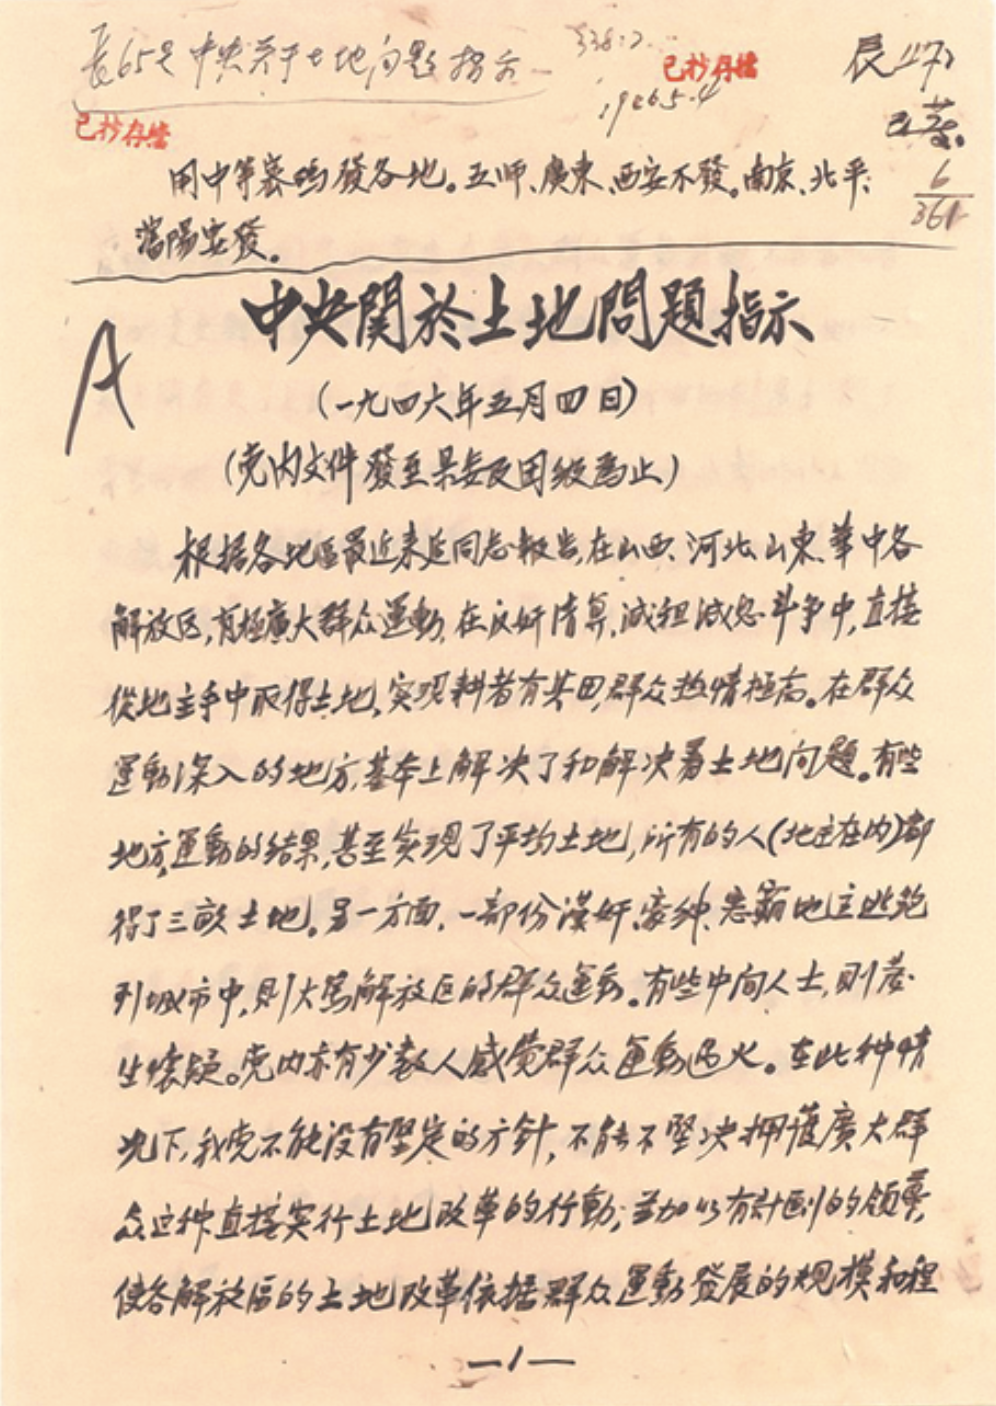 長65号 中央关于土地问题指示
已抄存档
1946.5.4
已抄存档
用中等密碼發各地。五师、廣東、西安不發。南京、北平、
瀋陽安發。
中央関於土地問題指示
(一九四六年五月四日)
(党内文件 發至县委及团级為止)
A
根据各地區最近来延同志報告,在山西、河北、山東、華中各
解放区,有极廣大群众運動,在反奸清算,减租减息斗争中,直接
從地主手中取得土地,实现耕者有其田,群众热情極高。在群众
運動深入的地方,基本上解决了和解决着土地问題。有些
地方,運動的结果,甚至实现了平均土地,所有的人(地主在内)都
得了三畝土地。另一方面,一部份漢奸、豪绅、恶霸地主逃跑
到城市中,则大骂解放区的群众運動。有些中间人士,则發
生懷疑。党内亦有少数人感觉群众運動过火。在此种情
况下,我党不能没有坚定的方針,不能不坚决拥護廣大群
众这种直接实行土地改革的行動,並加以有計劃的领導,
使各解放區的土地改革依据群众運動發展的规模和程
—1—